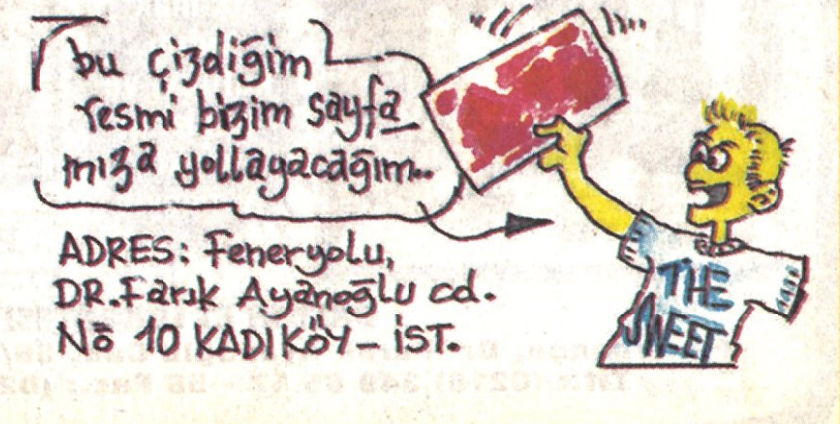 bu çizdiğim
resmi bizim sayfa
mıza yollayacağım..
ADRES: Feneryolu,
DR.Farık Ayanoğlu cd.
No 10 KADIKÖY-İST.
THE
SWEET